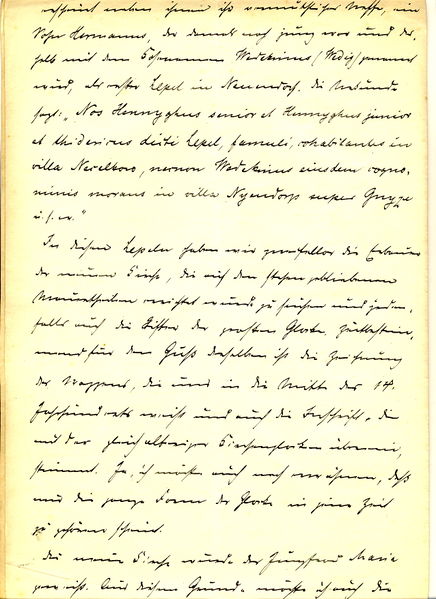 erscheint neben ihnen ihr vermuthlicher Neffe, ein
Sohn Hermanns, der damals noch jung war und des-
halb mit dem Kosenamen Wedekinus (Wedig) genannt
wird, als erster Lepel in Neuendorf. Die Urkunde
sagt: „Nos Hennyghus senior et Hennyghus junior
et thidericus dicti Lepel, famuli, cohabitantes in
villa Netzelkow, necnon Wedekinus eiusdem cogno-
minis morans in villa Nyendorp super Gnyze
u. s. w."
In diesen Lepeln haben wir zweifellos die Erbauer
der neuen Kirche, die auf den stehen gebliebenen
errichtet wurde, zu suchen und jeden-
falls auch die Stifter der großen Glocke. Zuletzt
für den Guß derselben ist die Zeichnung
des Wappens, die uns in die Mitte des 14.
Jahrhunderts weist und auch die Inschrift, die
mit der gleichaltrigen Kirchenglocken überein-
stimmt. Ja, ich möchte auch noch erwähnen, daß
mir die ganze Form der Glocke in jene Zeit
zu gehören scheint.
Die neue Kirche wurde der Jungfrau Maria
geweiht. Aus diesem Grunde möchte ich auch die